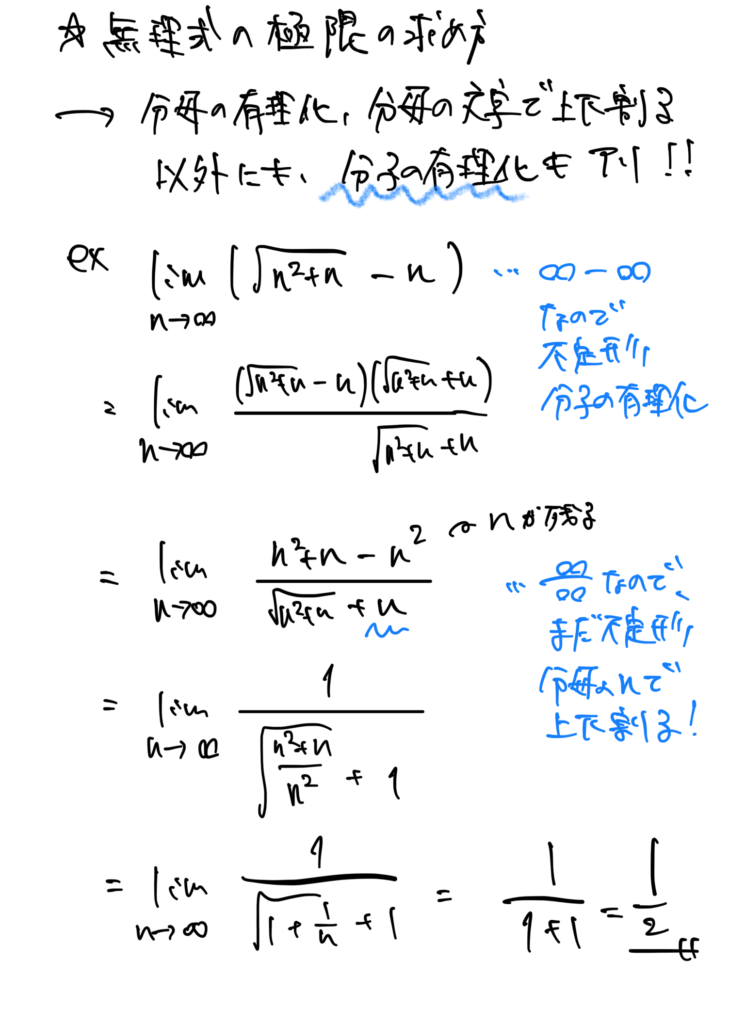 ☆ 無理式の極限の求め方
→ 分母の有理化、分母の文字で上下割る
以外にも、分子の有理化もアリ!!
ex lim_{n→∞} (√(n²+n) - n) … ∞-∞
なので
不定形
分子の有理化
= lim_{n→∞} (√(n²+n) - n)(√(n²+n) + n) / (√(n²+n) + n)
= lim_{n→∞} (n²+n - n²) / (√(n²+n) + n) nが残る
… ∞/∞ なので、
まだ不定形
分母のnで
上下割る!
= lim_{n→∞} 1 / (√((n²+n)/n²) + 1)
= lim_{n→∞} 1 / (√(1 + 1/n) + 1) = 1 / (1+1) = 1/2